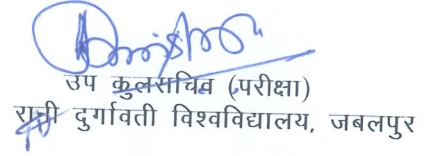 उप कुलसचिव (परीक्षा)
रानी दुर्गावती विश्वविद्यालय, जबलपुर